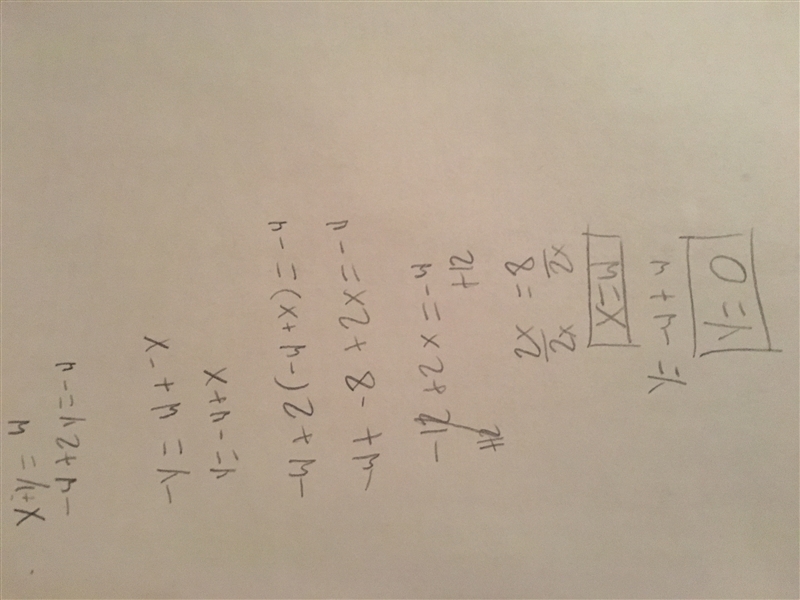 x+y=4
-4+2y=-4
-y=4+-x
y=-4+x
-4+2(-4+x)=-4
-4+-8+2x=-4
-12+2x=-4
+12 +12
2x=8
2x 2x
x=4
y=-4+4
y=0